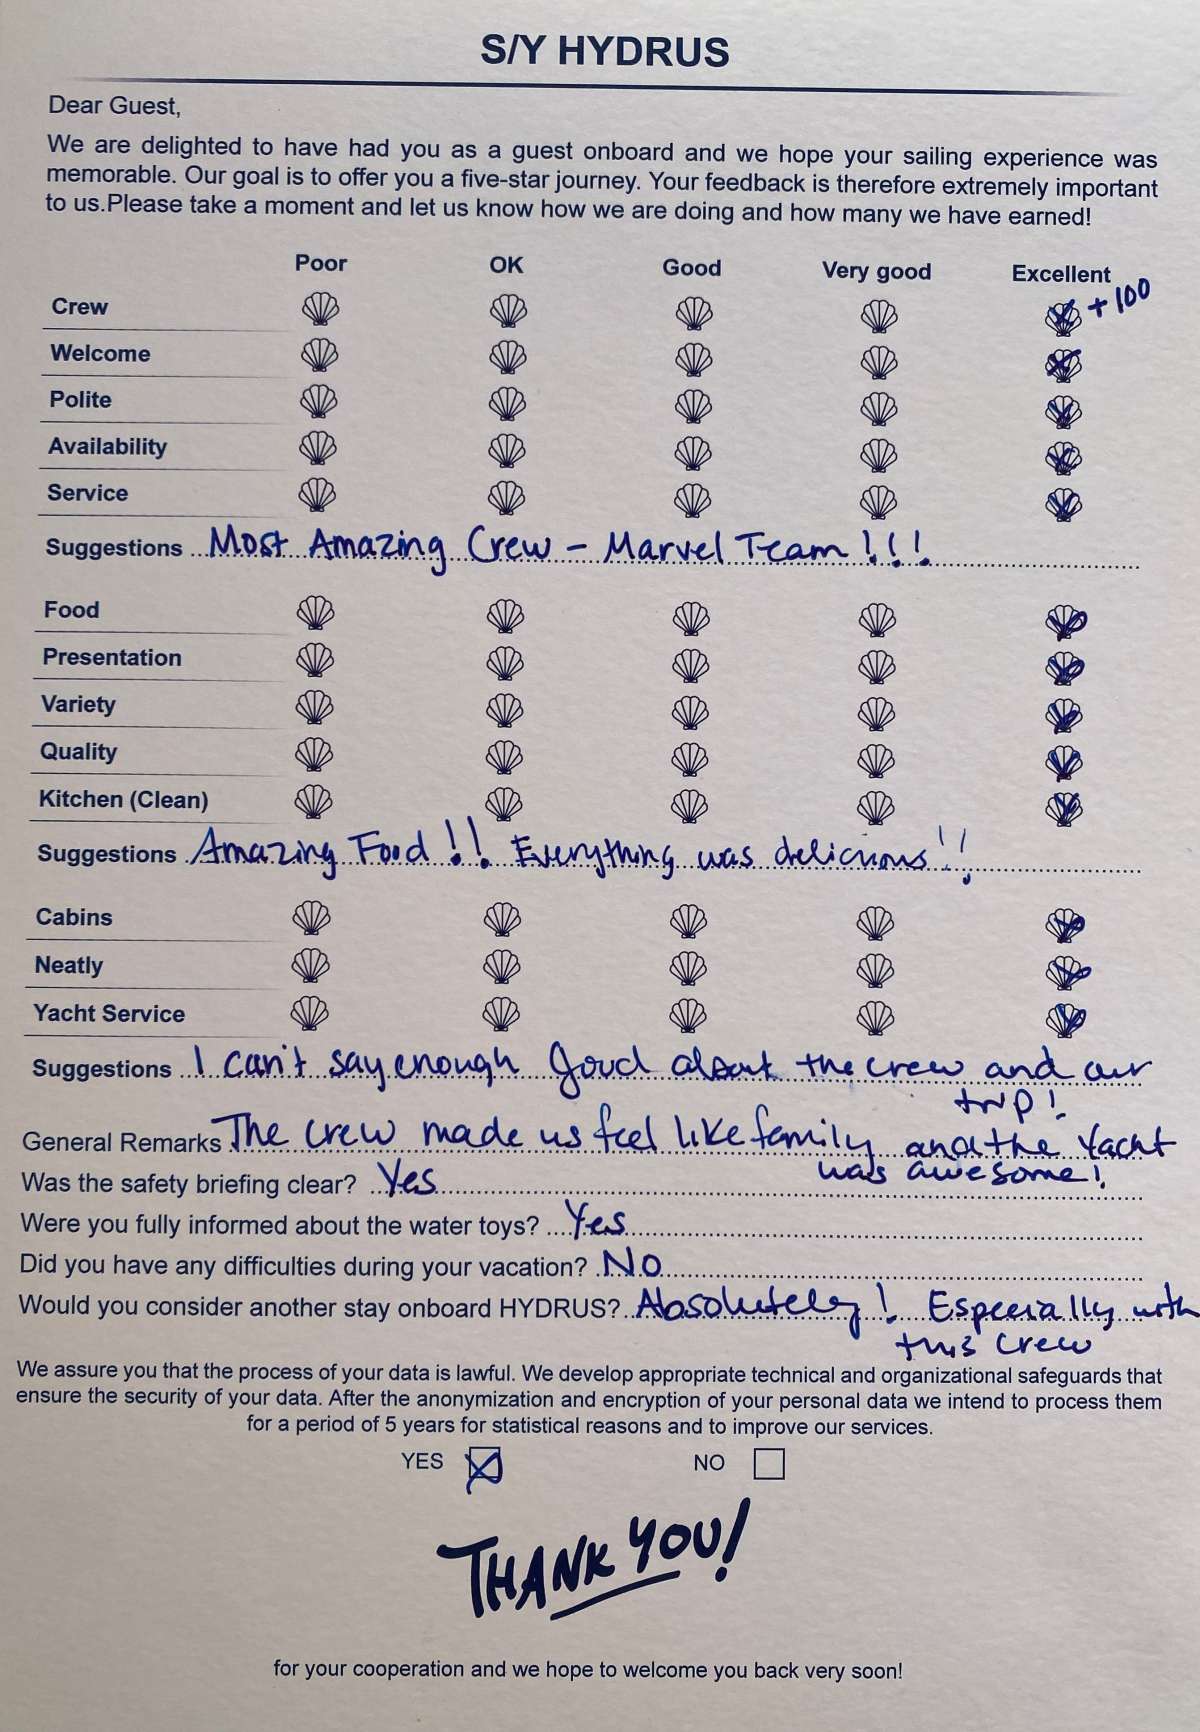 S/Y HYDRUS
Dear Guest,
We are delighted to have had you as a guest onboard and we hope your sailing experience was
memorable. Our goal is to offer you a five-star journey. Your feedback is therefore extremely important
to us.Please take a moment and let us know how we are doing and how many we have earned!
Poor OK Good Very good Excellent
Crew + 100
Welcome
Polite
Availability
Service
Suggestions Most Amazing Crew - Marvel Team!!!
Food
Presentation
Variety
Quality
Kitchen (Clean)
Suggestions Amazing Food!! Everything was delicious!!
Cabins
Neatly
Yacht Service
Suggestions I can't say enough good about the crew and our
trip!
General Remarks The crew made us feel like family and the Yacht
was awesome!
Was the safety briefing clear? Yes
Were you fully informed about the water toys? Yes
Did you have any difficulties during your vacation? No
Would you consider another stay onboard HYDRUS? Absolutely! Especially with
this crew
We assure you that the process of your data is lawful. We develop appropriate technical and organizational safeguards that
ensure the security of your data. After the anonymization and encryption of your personal data we intend to process them
for a period of 5 years for statistical reasons and to improve our services.
YES NO
THANK YOU!
for your cooperation and we hope to welcome you back very soon!